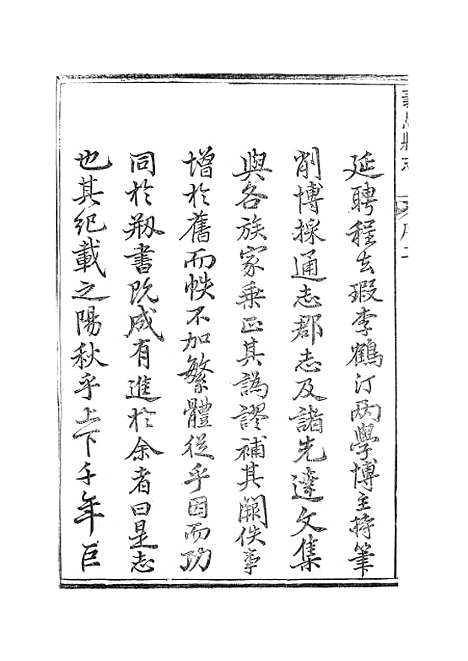 延聘程去瑕李鶴汀兩學博主持筆
削博採通志郡志及諸先達文集
與各族家乘正其譌謬補其闕佚事
增於舊而帙不加繁體從乎因而功
同於剏書既成有進於余者曰是志
也其紀載之陽秋乎上下千年巨